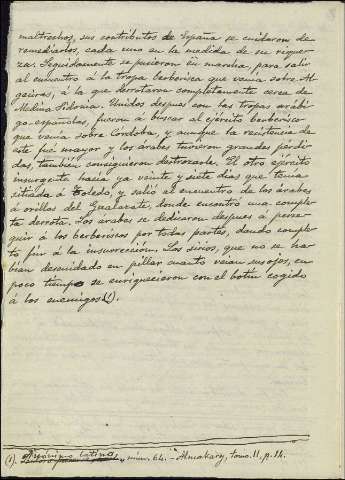 maltrechos, sus contributos de España se cuidaron de
remediarlos, cada uno en la medida de su rique-
za. Seguidamente se pusieron en marcha, para salir
al encuentro á la tropa berberisca que venía sobre Al-
geciras, á la que derrotaron completamente cerca de
Medina Sidonia. Unidos despues con las tropas arábi-
go españolas, fueron á buscar al ejército berberisco
que venía sobre Córdoba, y aunque la resistencia de
este fué mayor y los árabes tuvieron grandes pérdi-
das, tambien consiguieron destrozarle. El otro ejército
insurgente hacía ya veinte y siete dias que tenía
sitiada á Toledo, y salió al encuentro de los árabes
á orillas del Gualacate, donde encontró una comple-
ta derrota. Los árabes se dedicaron despues á perse-
guir á los berberiscos por todas partes, dando comple-
to fin á la insurrección. Los sirios, que no se ha-
bían descuidado en pillar cuanto veian sus ojos, en
poco tiempo se enriquecieron con el botin cogido
á los enemigos (1).
(1). Anónimo latino, núm. 64. - Almakary, tomo II, p. 14.